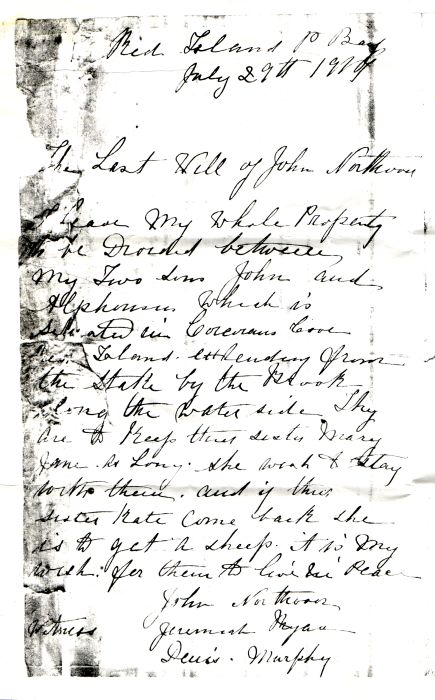 Red Island P Bay
July 29th
The Last Will of John Northover
I Leave My Whole Property
to be Divided between
My Two sons John and
Alphonsus Which is
situated in Corcorans Cove
Red Island. extending from
the Stake by the Brook
along the water side They
are to Keep their sister Mary
Jane. as Long. she wish to stay
with them. and if their
sister Kate Come back she
is to get a sheep. it is My
wish. for them to live in Peace
John Northover
Witness Jeremiah Ryan
Denis. Murphy